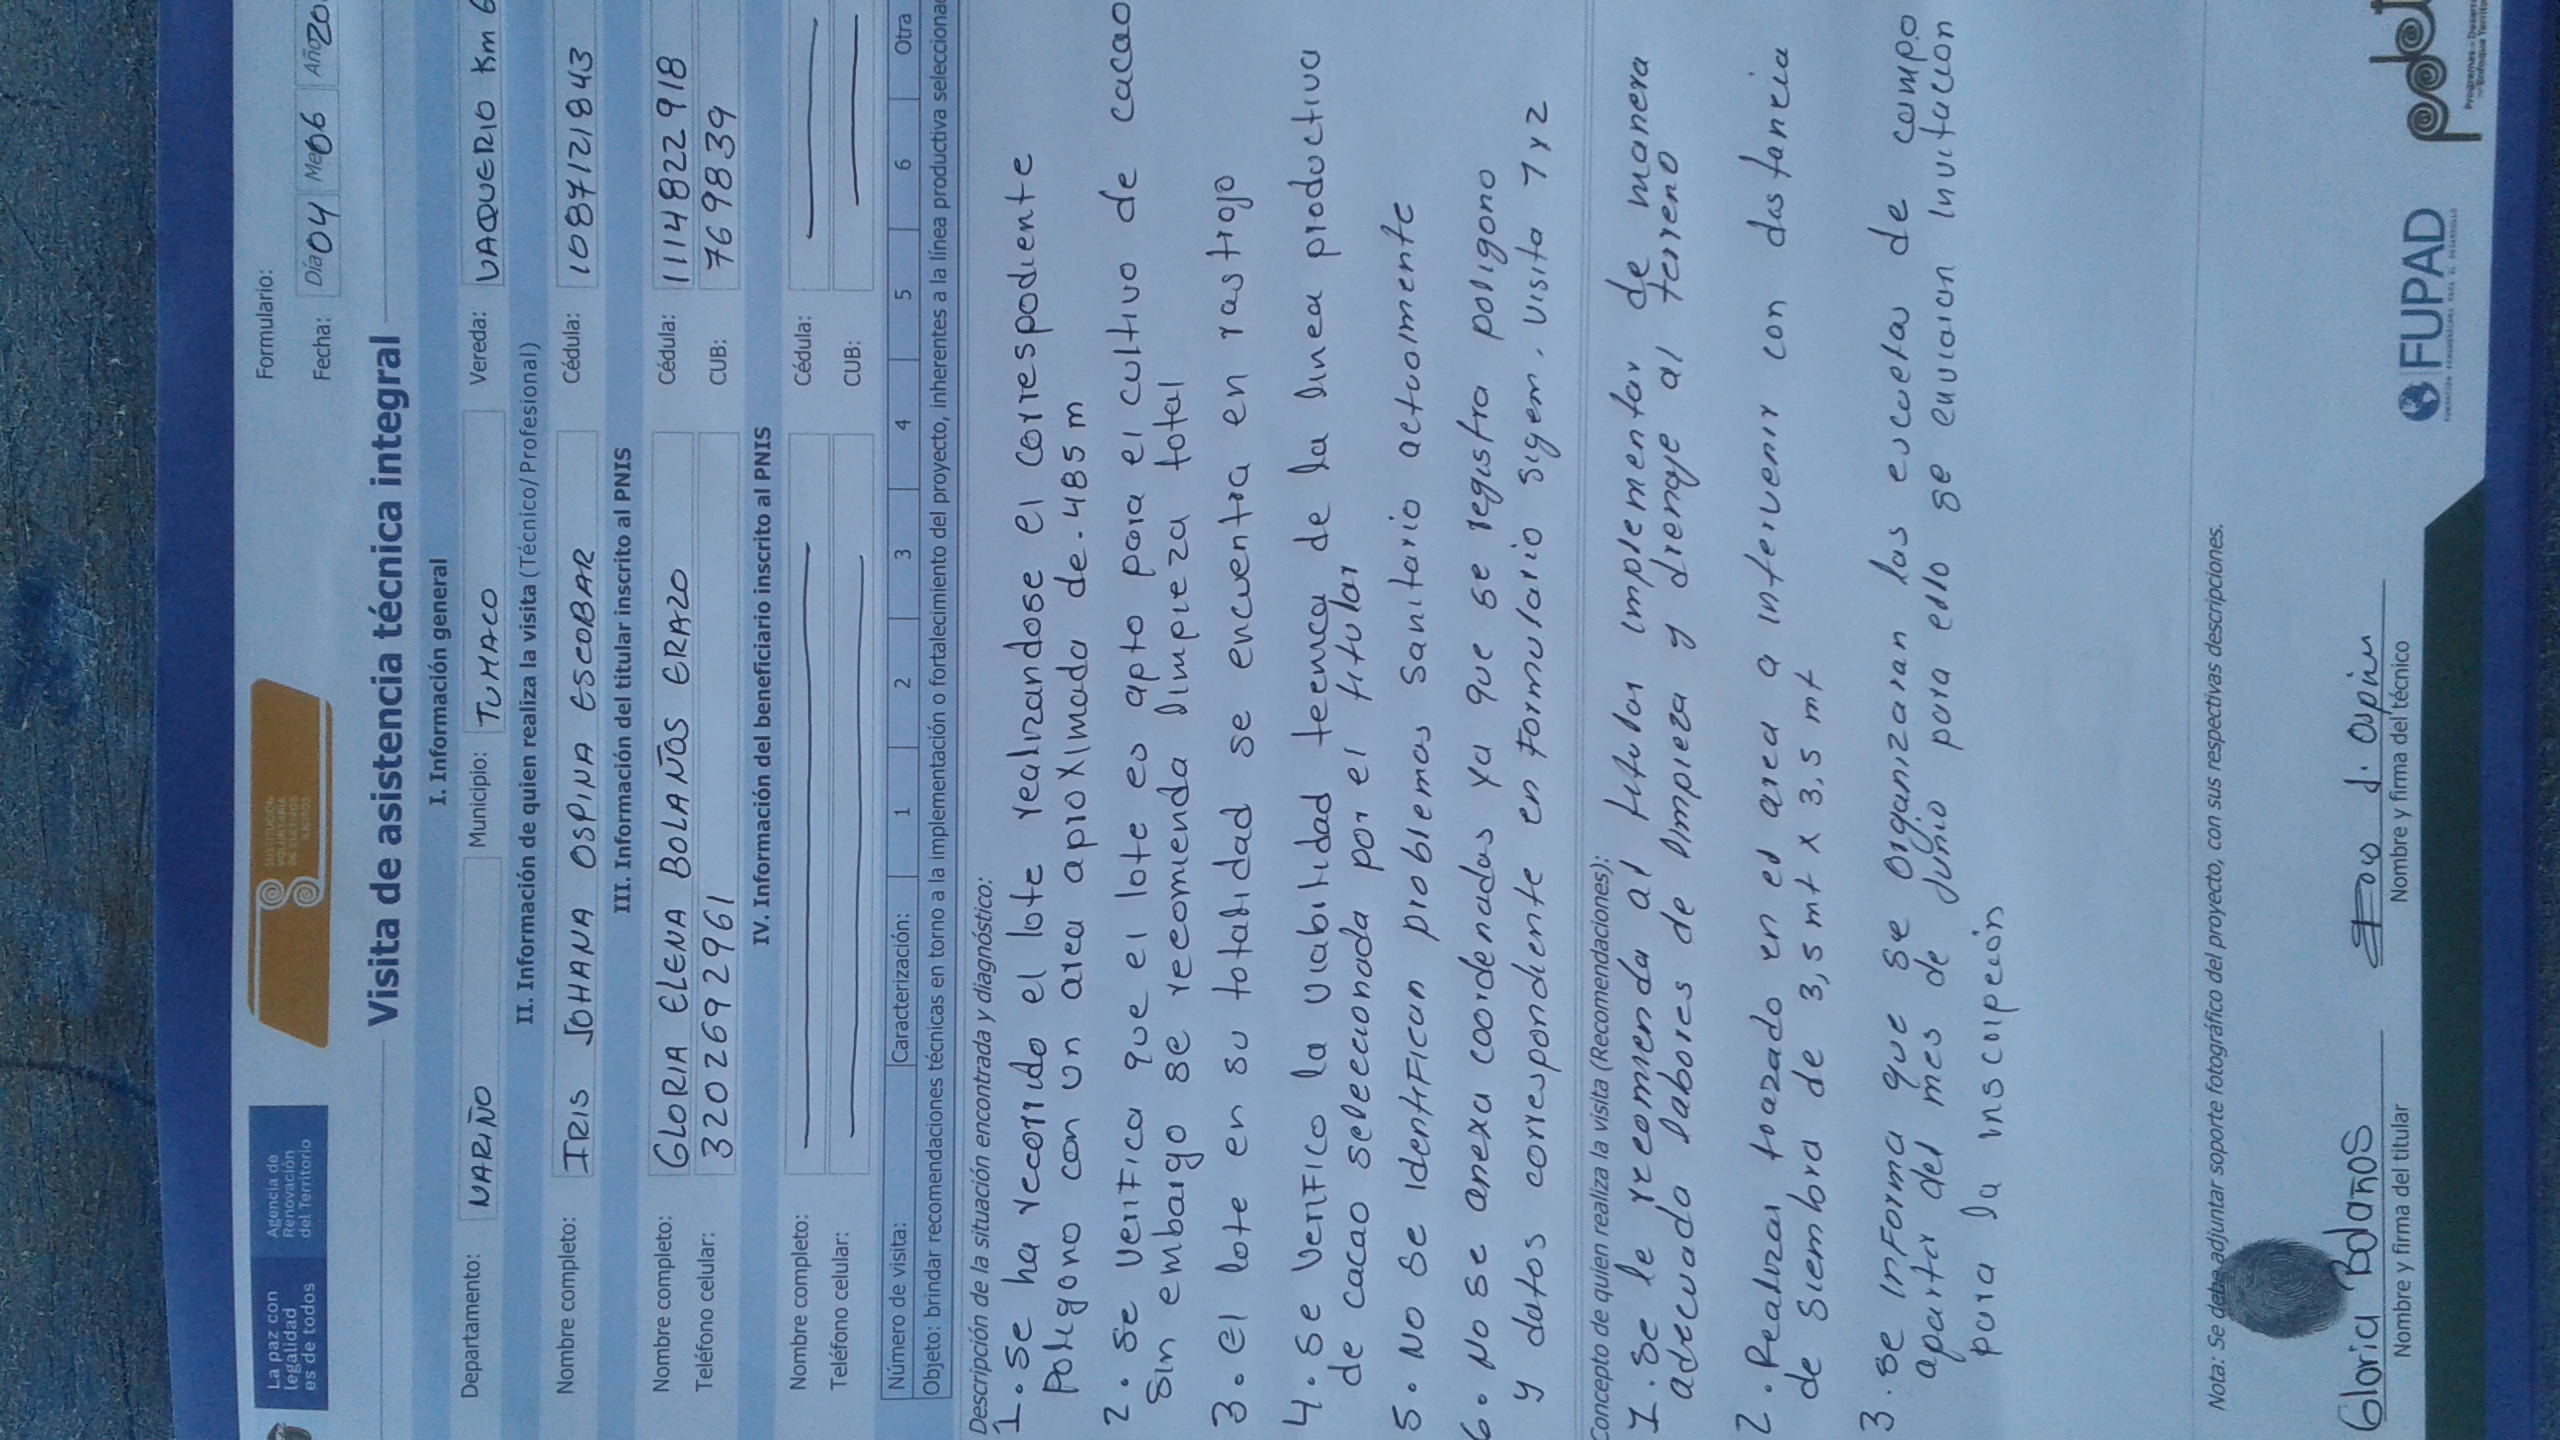 La paz con
legalidad
es de todos
Agencia de
Renovación
del Territorio
SUSTITUCIÓN
VOLUNTARIA
DE CULTIVOS
ILÍCITOS
Formulario:
Fecha: Día 04 Mes 06 Año 20
Visita de asistencia técnica integral
I. Información general
Departamento: NARIÑO Municipio: TUMACO Vereda: VAQUERIO Km 6
II. Información de quien realiza la visita (Técnico/Profesional)
Nombre completo: IRIS JOHANA OSPINA ESCOBAR Cédula: 1087121843
III. Información del titular inscrito al PNIS
Nombre completo: GLORIA ELENA BOLAÑOS ERAZO Cédula: 1114822918
Teléfono celular: 3202692961 CUB: 7698839
IV. Información del beneficiario inscrito al PNIS
Nombre completo: Cédula:
Teléfono celular: CUB:
Número de visita: Caracterización: 1 2 3 4 5 6 Otra
Objeto: brindar recomendaciones técnicas en torno a la implementación o fortalecimiento del proyecto, inherentes a la línea productiva seleccionad
Descripción de la situación encontrada y diagnóstico:
1. Se ha recorrido el lote realizandose el correspodiente
poligono con un area aproximada de. 485 m
2. Se verifica que el lote es apto para el cultivo de cacao
Sin embargo se recomienda limpieza total
3. El lote en su totalidad se encuentra en rastrojo
4. Se verifico la viabilidad tecnica de la linea productiva
de cacao seleccionada por el titular
5. No se identifican problemas sanitario actualmente
6. No se anexa coordenadas ya que se registra poligono
y datos correspondiente en formulario sigem. visita 1 y 2
Concepto de quien realiza la visita (Recomendaciones):
1. Se le recomienda al titular implementar de manera
adecuada labores de limpieza y drenaje al terreno
2. Realizar trazado en el area a intervenir con distancia
de siembra de 3,5 mt x 3,5 mt
3. Se informa que se organizaran las escuelas de campo
apartir del mes de Junio para ello se enviaran invitacion
para la inscripción
Nota: Se debe adjuntar soporte fotográfico del proyecto, con sus respectivas descripciones.
Gloria Bolaños
Nombre y firma del titular
J. Ospina
Nombre y firma del técnico
FUPAD
pdet